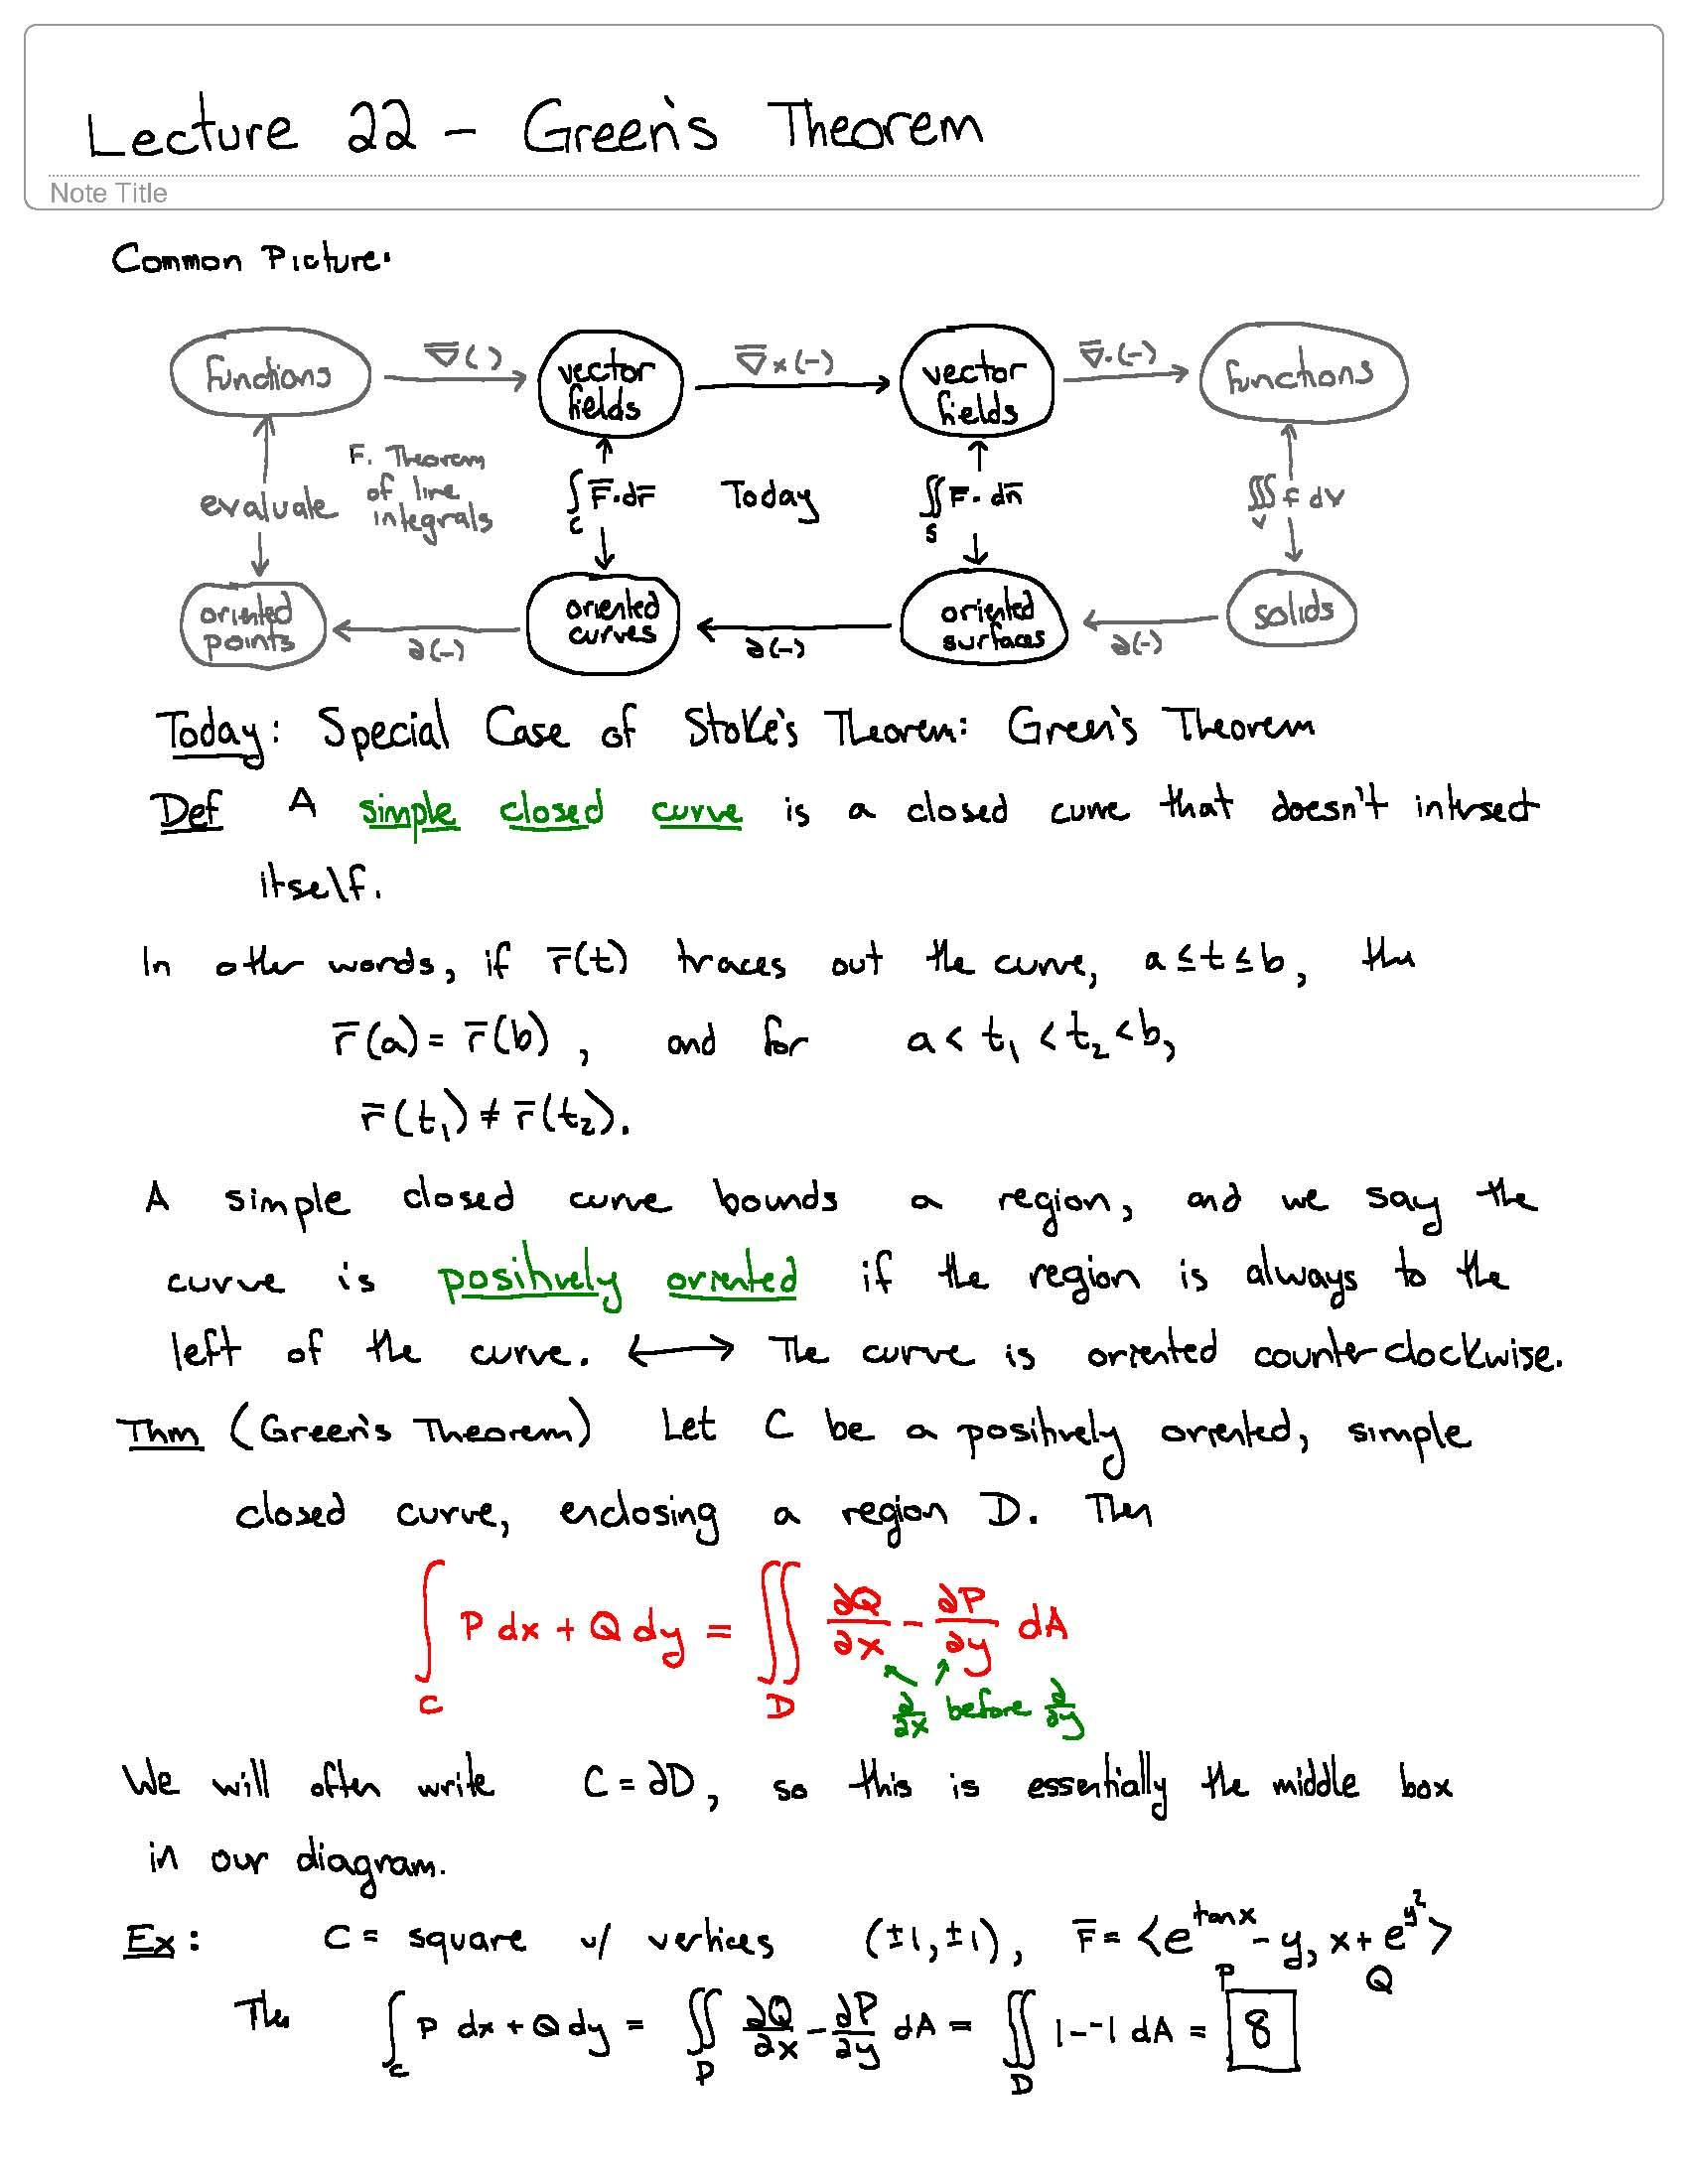 Lecture 22 - Green's Theorem
Note Title
Common Picture:
functions ∇̅( ) vector fields ∇̅×(-) vector fields ∇̅·(-) functions
evaluate F. Theorem of line integrals ∫_C F̅·dr̅ Today ∬_S F̅·dn̅ ∭_V f dV
oriented points ∂(-) oriented curves ∂(-) oriented surfaces ∂(-) solids
Today: Special Case of Stoke's Theorem: Green's Theorem
Def A simple closed curve is a closed curve that doesn't intersect
itself.
In other words, if r̅(t) traces out the curve, a≤t≤b, then
r̅(a) = r̅(b), and for a < t₁ < t₂ < b,
r̅(t₁) ≠ r̅(t₂).
A simple closed curve bounds a region, and we say the
curve is positively oriented if the region is always to the
left of the curve. ⟷ The curve is oriented counterclockwise.
Thm (Green's Theorem) Let C be a positively oriented, simple
closed curve, enclosing a region D. Then
∫_C P dx + Q dy = ∬_D ∂Q/∂x - ∂P/∂y dA
∂/∂x before ∂/∂y
We will often write C = ∂D, so this is essentially the middle box
in our diagram.
Ex: C = square w/ vertices (±1, ±1), F̅ = <e^{tan x} - y, x + e^{y²}>
P Q
Then ∫_C P dx + Q dy = ∬_D ∂Q/∂x - ∂P/∂y dA = ∬_D 1--1 dA = 8